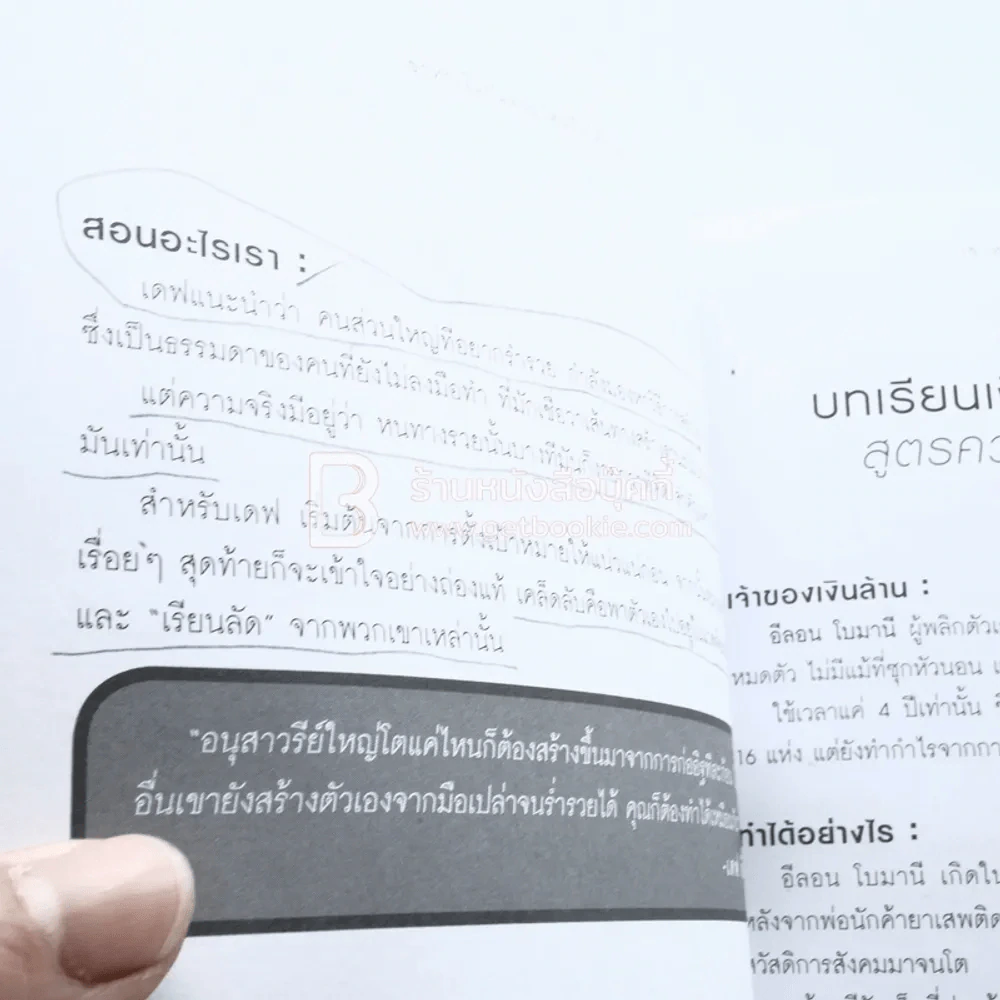 สอนอะไรเรา :
เดฟแนะนำว่า คนส่วนใหญ่ที่อยากร่ำรวย กำลังมองหาวิธีการ
ซึ่งเป็นธรรมดาของคนที่ยังไม่ลงมือทำ ที่มักเชื่อว่าเส้นทาง
แต่ความจริงมีอยู่ว่า หนทางรวยนั้นบางทีมันก็
มันเท่านั้น
สำหรับเดฟ เริ่มต้นจากการตั้งเป้าหมายให้แน่วแน่ก่อน จากนั้น
เรื่อยๆ สุดท้ายก็จะเข้าใจอย่างถ่องแท้ เคล็ดลับคือพาตัวเองไปอยู่
และ "เรียนลัด" จากพวกเขาเหล่านั้น
"อนุสาวรีย์ใหญ่โตแค่ไหนก็ต้องสร้างขึ้นมาจากการก่ออิฐทีละก้อน
อื่นเขายังสร้างตัวเองจากมือเปล่าจนร่ำรวยได้ คุณก็ต้องทำได้
ร้านหนังสือบุคกี้
www.getbookie.com
บทเรียน
สูตรคว
เจ้าของเงินล้าน :
อีลอน โบมานี ผู้พลิกตัว
หมดตัว ไม่มีแม้ที่ซุกหัวนอน
ใช้เวลาแค่ 4 ปีเท่านั้น
16 แห่ง แต่ยังทำกำไรจากกา
ทำได้อย่างไร :
อีลอน โบมานี เกิดใน
หลังจากพ่อนักค้ายาเสพติด
สวัสดิการสังคมมาจนโต